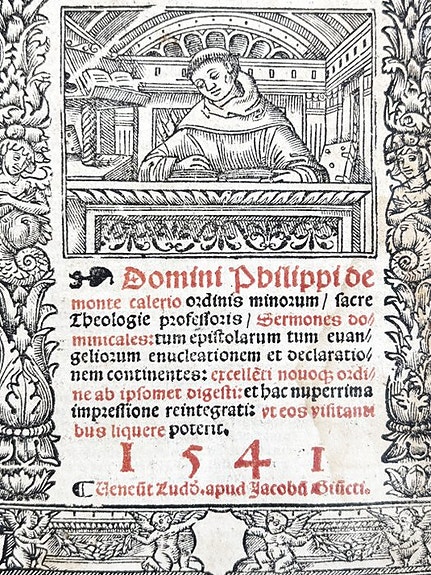 ☙ Domini Philippi de
monte calerio ordinis minorum / sacre
Theologie professoris / Sermones do-
minicales: tum epistolarum tum euan-
geliorum enucleationem et declaratio-
nem continentes: excellẽti nouoqꝫ ordi-
ne ab ipsomet digesti: et hac nuperrima
impressione reintegrati: vt eos visitanti
bus liquere poterit.
1 5 4 1
¶ Veneũt Ludõ. apud Jacobũ Giũcti.